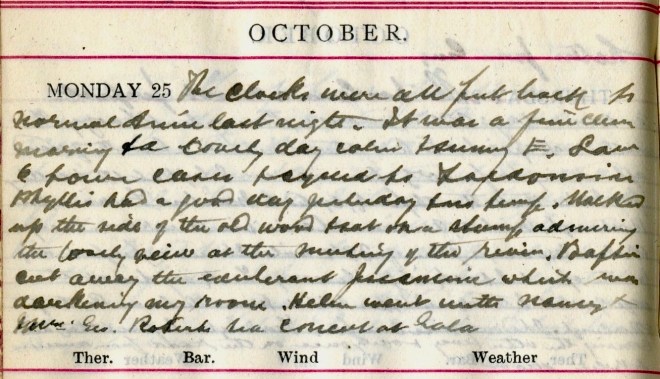 OCTOBER.
MONDAY 25 The clocks were all put back to
normal time last night. It was a fine clear
morning & a lovely day calm & sunny E. Saw
6 power cases
Phyllis had a good day yesterday. Walked
up the side of the old wood & sat on a stump admiring
the lovely view at the meeting of the rivers.
cut away the exuberant Jasmine which was
darkening my room. Helen went with Nancy &
Mrs. Geo. Roberts to a concert at Gala
Ther. Bar. Wind Weather